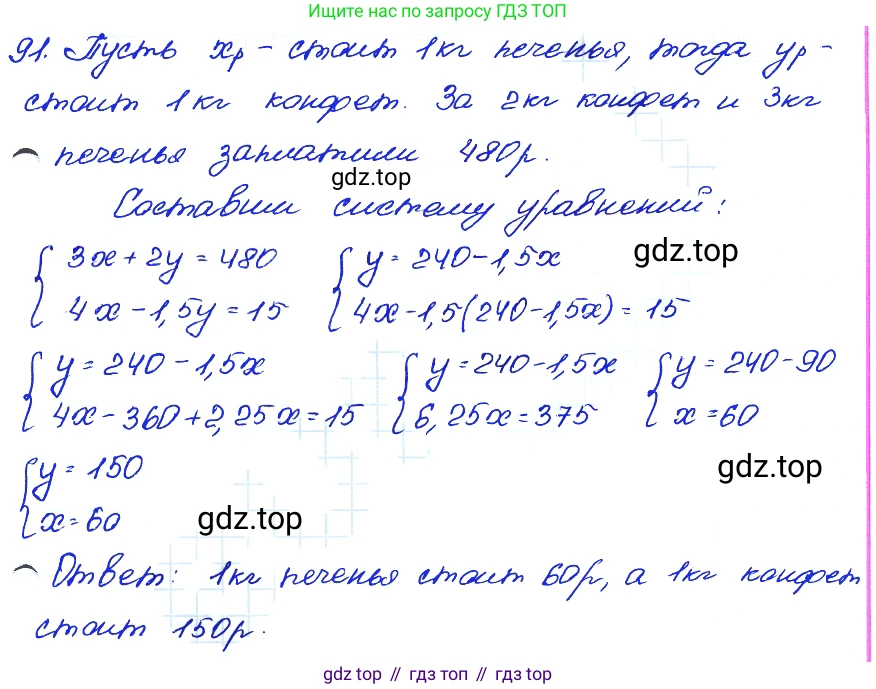 Ищите нас по запросу ГДЗ ТОП
91. Пусть xр - стоит 1кг печенья, тогда yр -
стоит 1кг конфет. За 2кг конфет и 3кг
печенья заплатили 480р.
gdz.top
Составим систему уравнений:
3x + 2y = 480 y = 240 - 1,5x gdz.top
4x - 1,5y = 15 4x - 1,5(240 - 1,5x) = 15
y = 240 - 1,5x y = 240 - 1,5x y = 240 - 90
4x - 360 + 2,25x = 15 6,25x = 375 x = 60
y = 150 gdz.top
x = 60 gdz.top
Ответ: 1кг печенья стоит 60р, а 1кг конфет
стоит 150р.
gdz.top // гдз топ // гдз.top